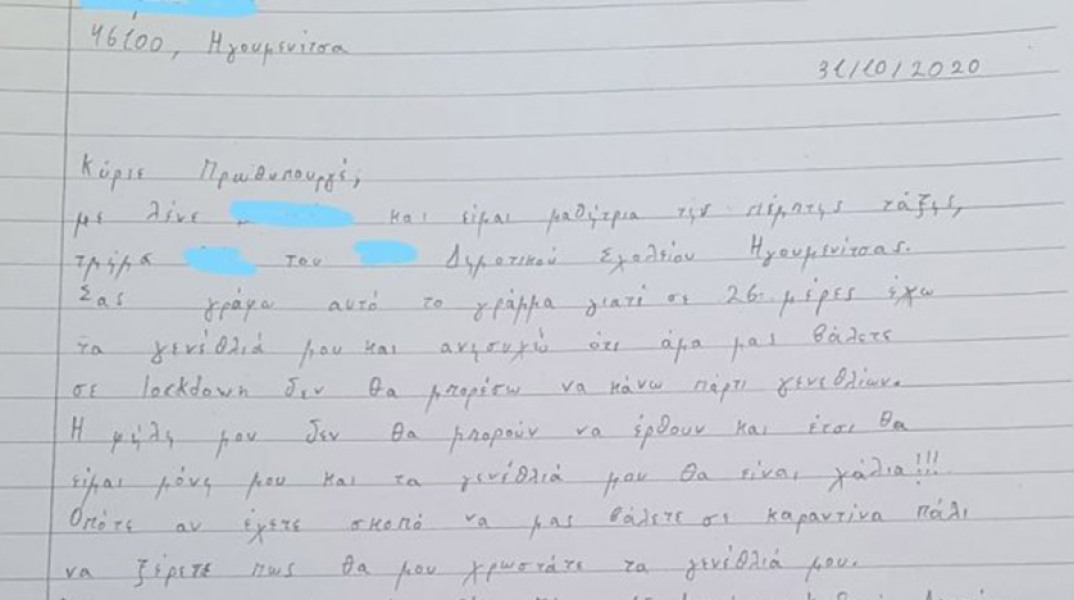 46100, Ηγουμενίτσα
31/10/2020
Κύριε Πρωθυπουργέ,
με λένε και είμαι μαθήτρια της πέμπτης τάξης,
τμήμα του Δημοτικού Σχολείου Ηγουμενίτσας.
Σας γράφω αυτό το γράμμα γιατί σε 26 μέρες έχω
τα γενέθλιά μου και ανησυχώ ότι άμα μας βάλετε
σε lockdown δεν θα μπορέσω να κάνω πάρτι γενεθλίων.
Η μου δεν θα μπορούν να έρθουν και έτσι θα
είμαι μόνη μου και τα γενέθλιά μου θα είναι χάλια!!!
Οπότε αν έχετε σκοπό να μας βάλετε σε καραντίνα πάλι
να ξέρετε πως θα μου χρωστάτε τα γενέθλιά μου.